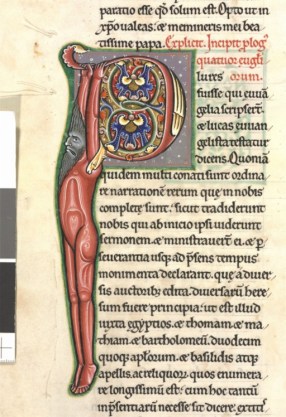 paratio esse qđ solum est. Opto ut in
xp̄o ualeas. & memineris mei bea
tissime papa. Explicit. Incipit plog̾
quatuor eugli
P lures orum.
fuisse qui euuā
gelia scripserт̄.
& lucas euuan
gelista testatur
dicens. Quoniā
quidem multi conati sunt ordina
re narrationem rerum que in nobis
complete sunt. sicut tradiderunt
nobis qui ab inicio ipsi uiderunt
sermonem. & ministrauerunt ei. & p
seuerantia usq; ad p̄sens tempus
monimenta declarant. que a diuer
sis auctorib; edita. diuersarū here
sum fuere principia. ut est illud
iuxta egyptios. & thomam. & ma
thiam. & bartholomeū. duodecim
quoq; aplorum. & basilidis atq;
apellis. ac reliquor. quos enumera
re longissimū est. cum hoc tantū
inp̄sentiarū necesse sit dicere.